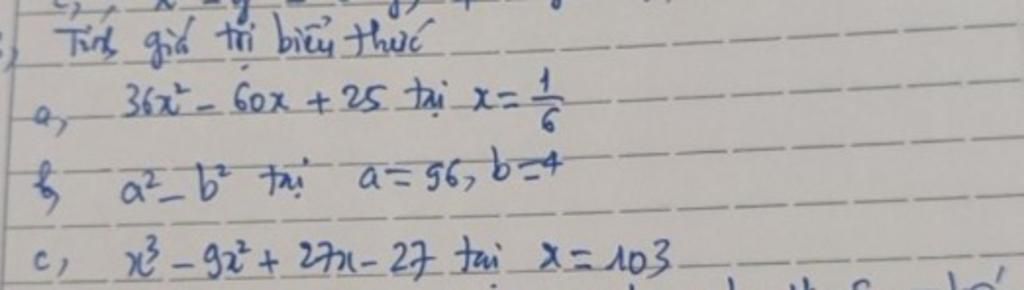 Tính giá trị biểu thức
a, 36x² - 60x + 25 tại x = 1/6
b, a² - b² tại a = 96, b = 4
c, x³ - 9x² + 27x - 27 tại x = 103